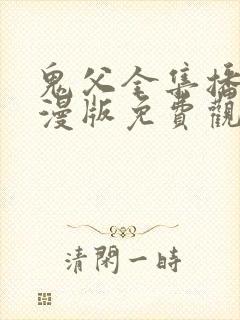 鬼父全集播
漫版免費觀
清閑一時